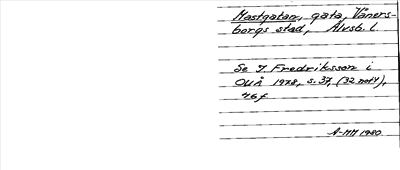 Mastgatan, gata, Väners-
borgs stad, Älvsb. l.
Se I. Fredriksson i
OUÅ 1978, s. 37, (32 not 4),
46 f
A-MM 1980